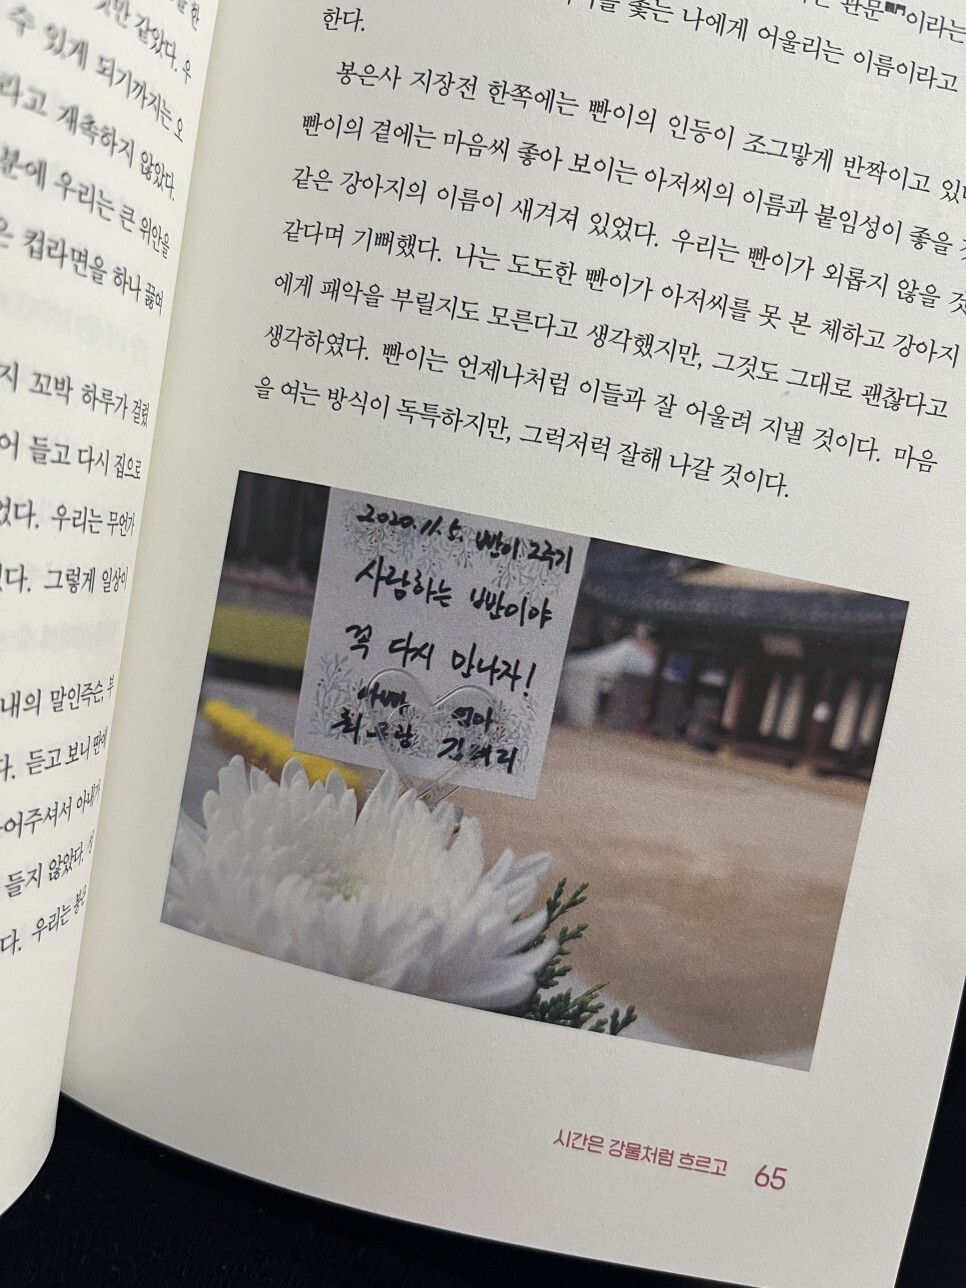 것만 같았다. 우
수 있게 되기까지는 오
라고 재촉하지 않았다.
분에 우리는 큰 위안을
은 컵라면을 하나 끓여
지 꼬박 하루가 걸렸
어 들고 다시 집으로
었다. 우리는 무언가
있다. 그렇게 일상이
내의 말인즉슨, 부
다. 듣고 보니 딴에
어주셔서 아내가
들지 않았다.
다. 우리는 봉은
관문關門이라는
쫓는 나에게 어울리는 이름이라고
한다.
봉은사 지장전 한쪽에는 빤이의 인등이 조그맣게 반짝이고 있다
빤이의 곁에는 마음씨 좋아 보이는 아저씨의 이름과 붙임성이 좋을 것
같은 강아지의 이름이 새겨져 있었다. 우리는 빤이가 외롭지 않을 것
같다며 기뻐했다. 나는 도도한 빤이가 아저씨를 못 본 체하고 강아지
에게 패악을 부릴지도 모른다고 생각했지만, 그것도 그대로 괜찮다고
생각하였다. 빤이는 언제나처럼 이들과 잘 어울려 지낼 것이다. 마음
을 여는 방식이 독특하지만, 그럭저럭 잘해 나갈 것이다.
2020.11.5. 빤이 2주기
사람하는 빤이야
꼭 다시 만나자!
아빠 엄마
시간은 강물처럼 흐르고 65